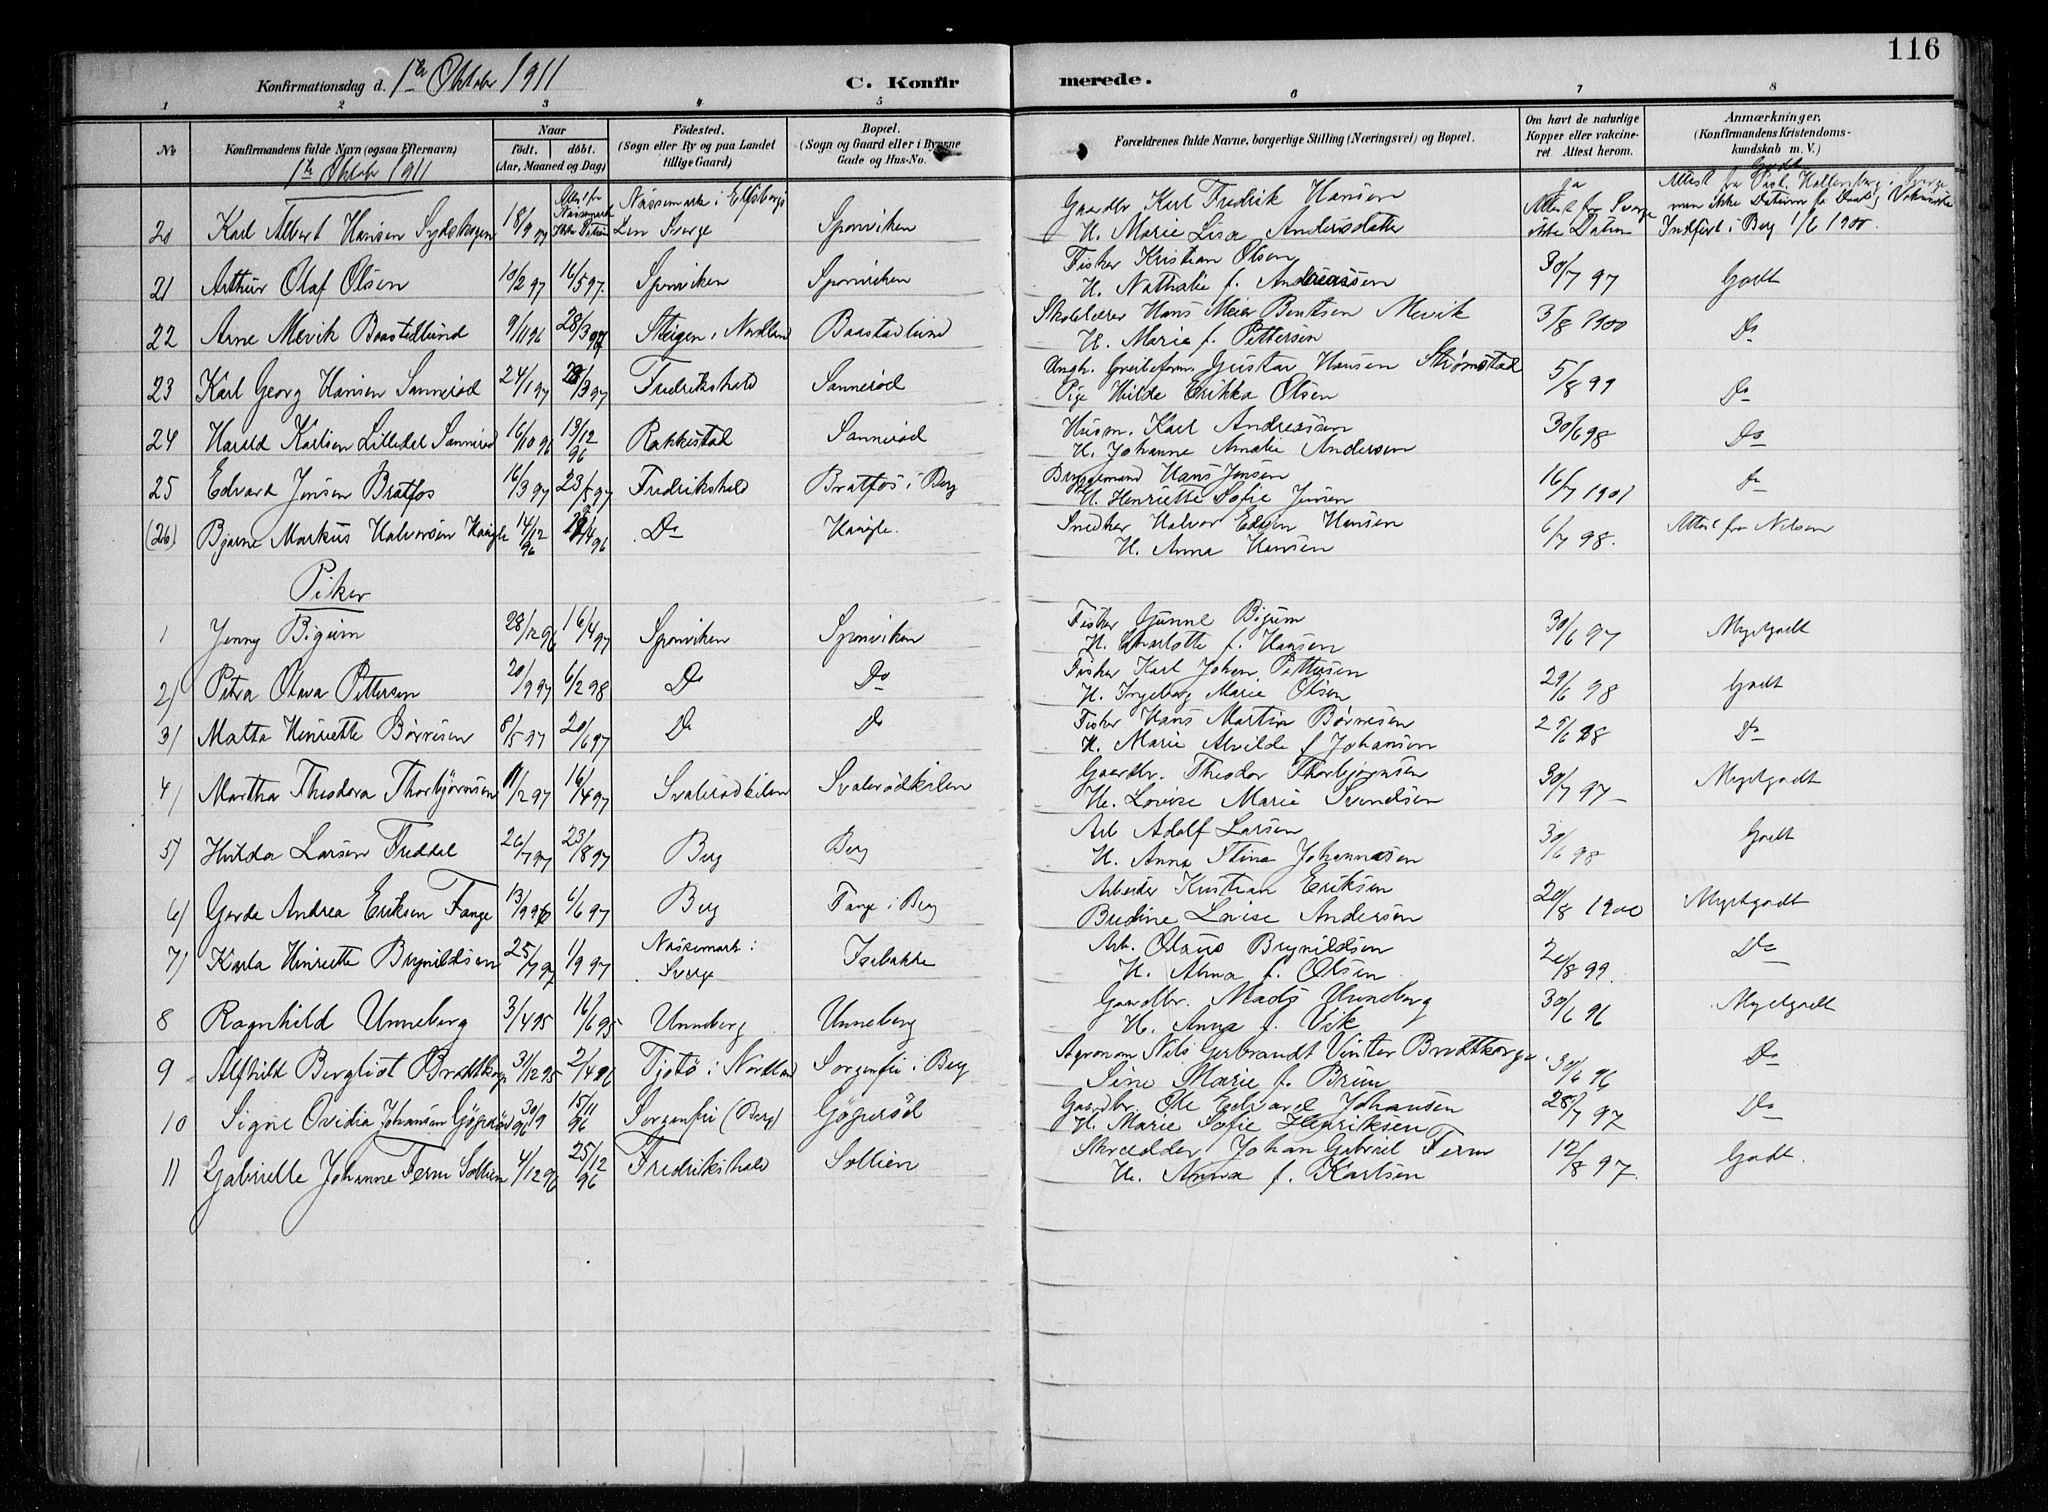 116
Konfirmationsdag d. 1te Oktober 1911 C. Konfirmerede.
1 2 3 4 5 6 7 8
No Konfirmandens fulde Navn (ogsaa Efternavn) Naar Födt. döbt. (Aar, Maaned og Dag) Födested. (Sogn eller By og paa Landet tillige Gaard) Bopæl. (Sogn og Gaard eller i Byerne Gade og Hus-No. Forældrenes fulde Navne, borgerlige Stilling (Næringsvei) og Bopæl. Om havt de naturlige Kopper eller vakcineret. Attest herom. Anmærkninger. (Konfirmandens Kristendomskundskab m. V.)
1te Oktober 1911
20 Karl Albert Hansen Sydskogen 18/9 97 Attest fra Nössemark Ikke Datum Nössemark i Elfsborgs Len Sverge Sponviken Gaardbr Karl Fredrik Hansen ja Godt
H. Marie Lisa Andersdatter Attest fra Sverge ikke Datum Attest fra Past. Hallenberg i Sverge men ikke Datum for Daab og Vakcination Indfört i Berg 1/6 1900.
21 Arthur Olaf Olsen 10/2 97 16/5 97. Sponviken Sponviken Fisker Kristian Olsen 30/7 97 Godt
H. Nathalie f. Andreassen
22 Arne Mevik Baastadlund 9/11 96 28/3 97 Steigen i Nordland Baastadlund Skolelærer Hans Meier Bentsen Mevik 3/8 1900 Do
H. Marie f. Pettersen
23 Karl Georg Hansen Sannerød 24/1 97 28/3 97 Fredrikshald Sannerød Ungk. Gustav Hansen Strømstad 5/8 99 Do
Pige Hilda Erikka Olsen
24 Harald Karlsen Lilledal Sannerød 16/10 96 13/12 96 Rakkestad Sannerød Husm. Karl Andreassen 30/6 98 Do
H. Johanne Amalie Andersen
25 Edvard Jensen Bratfos 16/3 97 23/5 97 Fredrikshald Bratfos i Berg Bryggemand Hans Jensen 16/7 1901 Do
H. Henriette Sofie Jensen
(26) Bjarne Markus Halvorsen Haugle 14/12 96 Do Haugle. Snedker Halvor Edvin Hansen 6/7 98. Attest fra Nilsen
H. Anna Hansen
Piker
1 Jenny Bigum 28/12 96 16/4 97 Sponviken Sponviken Fisker Gunne Bigum 30/6 97 Megetgodt
H. Charlotte f. Hansen
2) Petra Oleva Pettersen 20/9 97 6/2 98 Do Do Fisker Karl Johan Pettersen 29/6 98 Godt
H. Ingeborg Marie Olsen
3) Matta Henriette Børresen 8/5 97 20/6 97 Do Do Fisker Hans Martin Børresen 25/6 98 Do
H. Marie Alvilde f Johansen
4) Martha Theodora Thorbjørnsen 11/2 97 16/4 97 Svalerødkilen Svalerødkilen Gaardbr. Theodor Thorbjørnsen 30/7 97 Megetgodt
H. Lovise Marie Svendsen
5) Hilda Larsen Freddal 26/7 97 23/8 97 Berg Berg Arb Adolf Larsen 30/6 98 Godt
H. Anna Stina Johannesen
6) Gerda Andrea Eriksen Fange 13/9 96 6/6 97 Berg Fange i Berg Arbeider Kristian Eriksen 20/8 1900 Megetgodt
Bredine Lovise Andersen
7) Karla Henriette Brynildsen 25/7 97 1/9 97 Nössemark i Sverge Isebakke Arb. Olaus Brynildsen 20/8 99. Do
H. Alma f. Olsen
8 Ragnhild Unneberg 3/4 95 16/6 95 Unneberg Unneberg Gaardbr. Mads Unneberg 30/6 96 Megetgodt
H. Anna f. Vik
9 Alfhild Bergliot Brodtkorp 31/12 95 2/4 96 Tjøtø i Nordland Sorgenfri i Berg Agronom Nils Gerbrandt Vinter Brodtkorp 30/6 96 Do
Sine Marie f. Brun
10 Signe Ovidia Johansen Gøperød 30/9 96 15/11 96 Sorgenfri (Berg) Gøperød Gaardbr. Ole Edvard Johansen 28/7 97 Do
H. Marie Sofie Henriksen
11 Gabrielle Johanne Ferm Sollien 4/12 96 25/12 96 Fredrikshald Sollien Skrædder Johan Gabriel Ferm 12/8 97. Godt.
H. Anna f. Karlsen